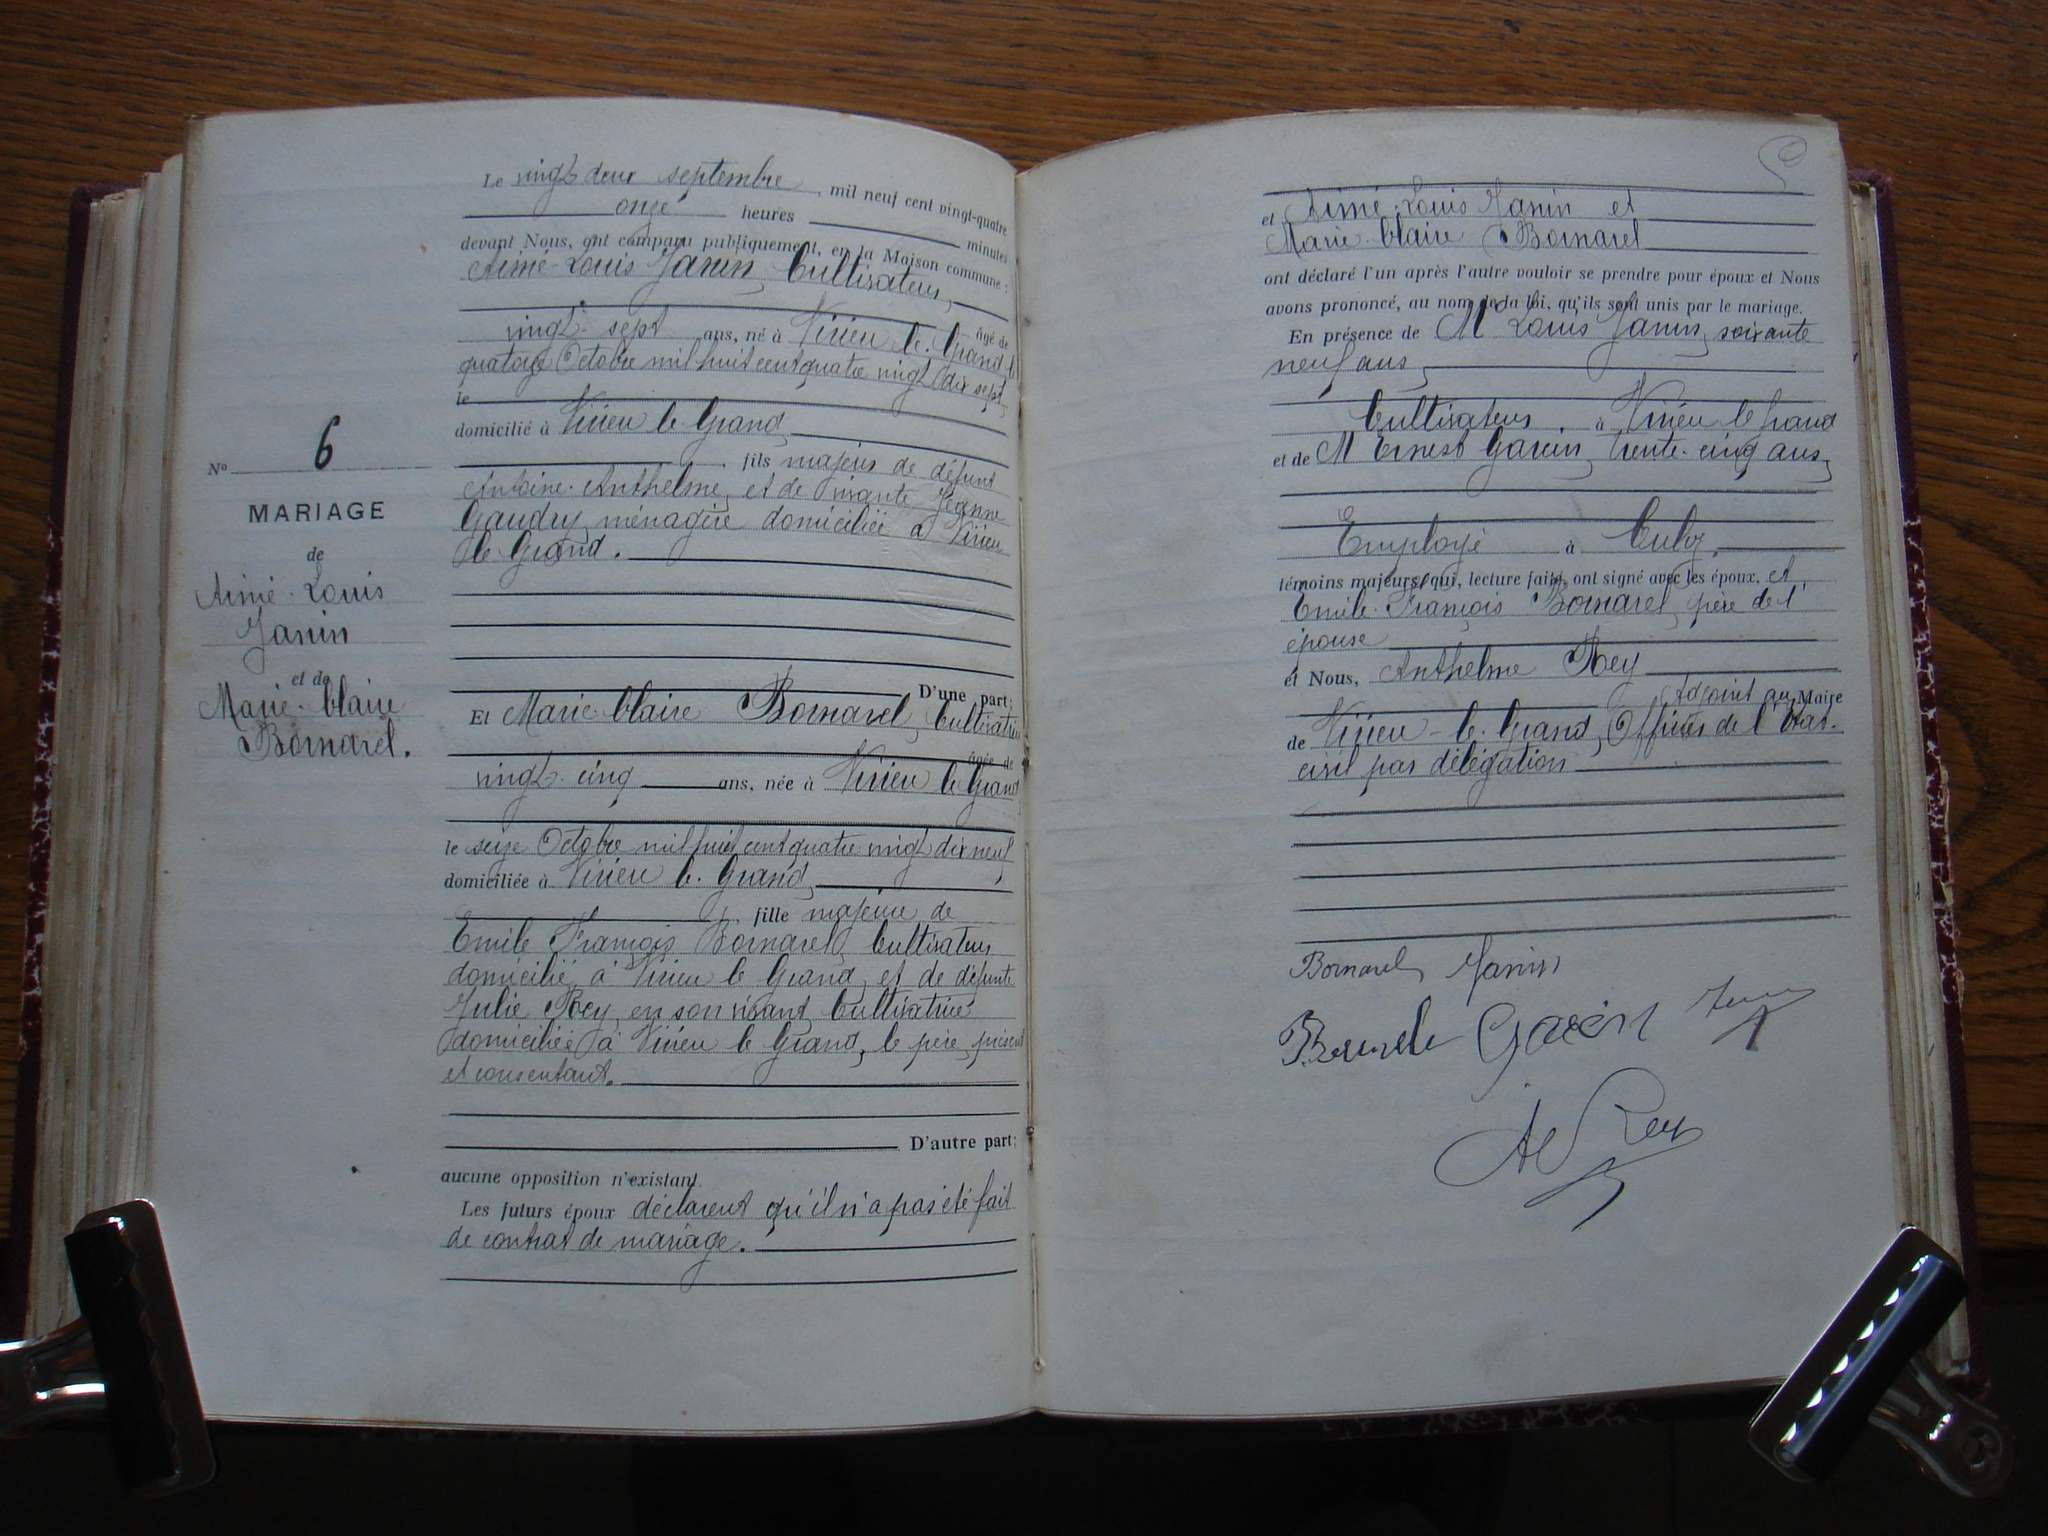 Le vingt deux septembre, mil neuf cent vingt-quatre
onze heures minutes
devant Nous, ont comparu publiquement, en la Maison commune :
Aimé-Louis Janin, Cultivateur,
âgé de
vingt-sept ans, né à Virieu-le-Grand, le
quatorze Octobre mil huit cent quatre vingt dix sept,
le
domicilié à Virieu le Grand,
, fils majeur de défunt
Antoine-Anthelme, et de vivante Jeanne
Gaudry, ménagère domiciliée à Virieu
le Grand.
D'une part;
Et Marie-Claire Bornarel, Cultivatrice
âgée de
vingt-cinq ans, née à Virieu le Grand,
le seize Octobre mil huit cent quatre vingt dix neuf,
domiciliée à Virieu le-Grand,
, fille majeure de
Emile François Bornarel, Cultivateur
domicilié à Virieu le Grand, et de défunte
Julie Rey, en son vivant Cultivatrice
domiciliée à Virieu le Grand, le père présent
et consentant.
D'autre part;
aucune opposition n'existant.
Les futurs époux déclarent qu'il n'a pas été fait
de contrat de mariage.
No 6
MARIAGE
de
Aimé-Louis
Janin
et de
Marie-Claire
Bornarel.
et Aimé-Louis Janin et
Marie-Claire Bornarel
ont déclaré l'un après l'autre vouloir se prendre pour époux et Nous
avons prononcé, au nom de la loi, qu'ils sont unis par le mariage.
En présence de M Louis Janin, soixante
neuf ans,
Cultivateur, à Virieu le Grand
et de M Ernest Garin, trente-cinq ans,
Employé à Culoz,
témoins majeurs, qui, lecture faite, ont signé avec les époux, et
Emile-François Bornarel, père de l'
épouse
et Nous, Anthelme Rey
Adjoint au Maire
de Virieu-le-Grand, Officier de l'Etat-
civil par délégation
Bornarel Janin
Garin
A Rey